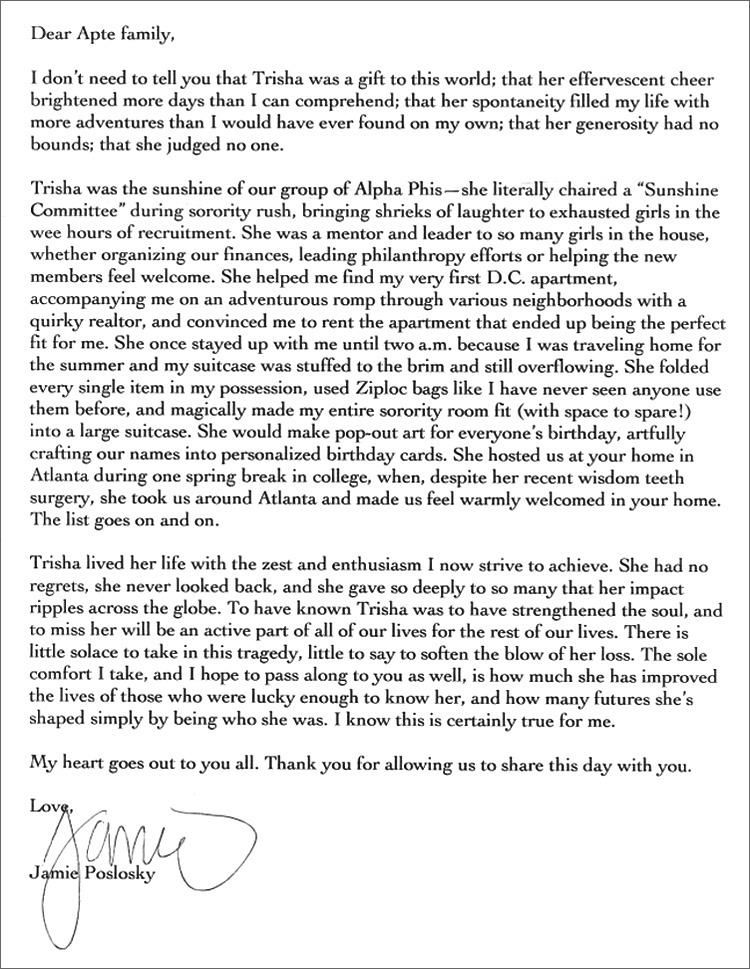 Dear Apte family,
I don't need to tell you that Trisha was a gift to this world; that her effervescent cheer
brightened more days than I can comprehend; that her spontaneity filled my life with
more adventures than I would have ever found on my own; that her generosity had no
bounds; that she judged no one.
Trisha was the sunshine of our group of Alpha Phis—she literally chaired a “Sunshine
Committee” during sorority rush, bringing shrieks of laughter to exhausted girls in the
wee hours of recruitment. She was a mentor and leader to so many girls in the house,
whether organizing our finances, leading philanthropy efforts or helping the new
members feel welcome. She helped me find my very first D.C. apartment,
accompanying me on an adventurous romp through various neighborhoods with a
quirky realtor, and convinced me to rent the apartment that ended up being the perfect
fit for me. She once stayed up with me until two a.m. because I was traveling home for
the summer and my suitcase was stuffed to the brim and still overflowing. She folded
every single item in my possession, used Ziploc bags like I have never seen anyone use
them before, and magically made my entire sorority room fit (with space to spare!)
into a large suitcase. She would make pop-out art for everyone's birthday, artfully
crafting our names into personalized birthday cards. She hosted us at your home in
Atlanta during one spring break in college, when, despite her recent wisdom teeth
surgery, she took us around Atlanta and made us feel warmly welcomed in your home.
The list goes on and on.
Trisha lived her life with the zest and enthusiasm I now strive to achieve. She had no
regrets, she never looked back, and she gave so deeply to so many that her impact
ripples across the globe. To have known Trisha was to have strengthened the soul, and
to miss her will be an active part of all of our lives for the rest of our lives. There is
little solace to take in this tragedy, little to say to soften the blow of her loss. The sole
comfort I take, and I hope to pass along to you as well, is how much she has improved
the lives of those who were lucky enough to know her, and how many futures she's
shaped simply by being who she was. I know this is certainly true for me.
My heart goes out to you all. Thank you for allowing us to share this day with you.
Love,
Jamie
Jamie Poslosky